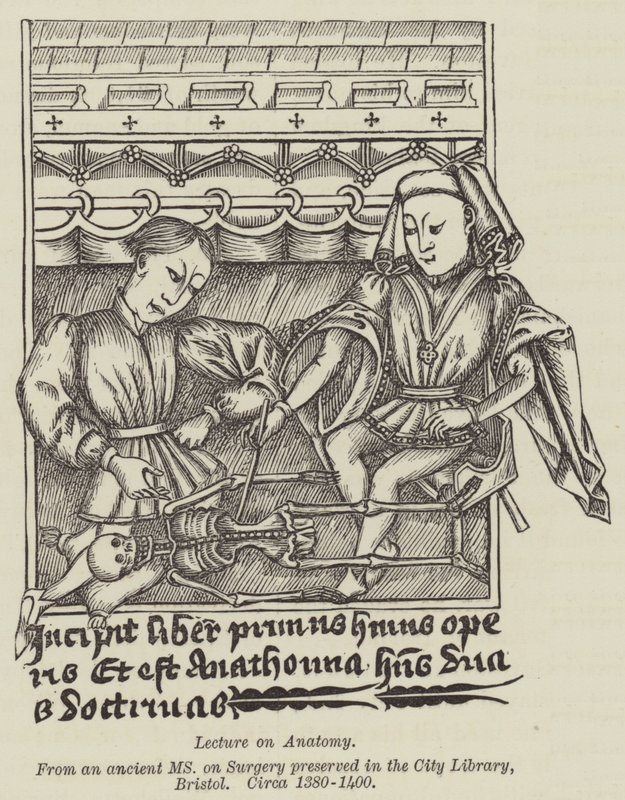 Incipit liber primus huius ope
ris Et est Anathomia hñs Dua
s Doctrinas
Lecture on Anatomy.
From an ancient MS. on Surgery preserved in the City Library,
Bristol. Circa 1380-1400.